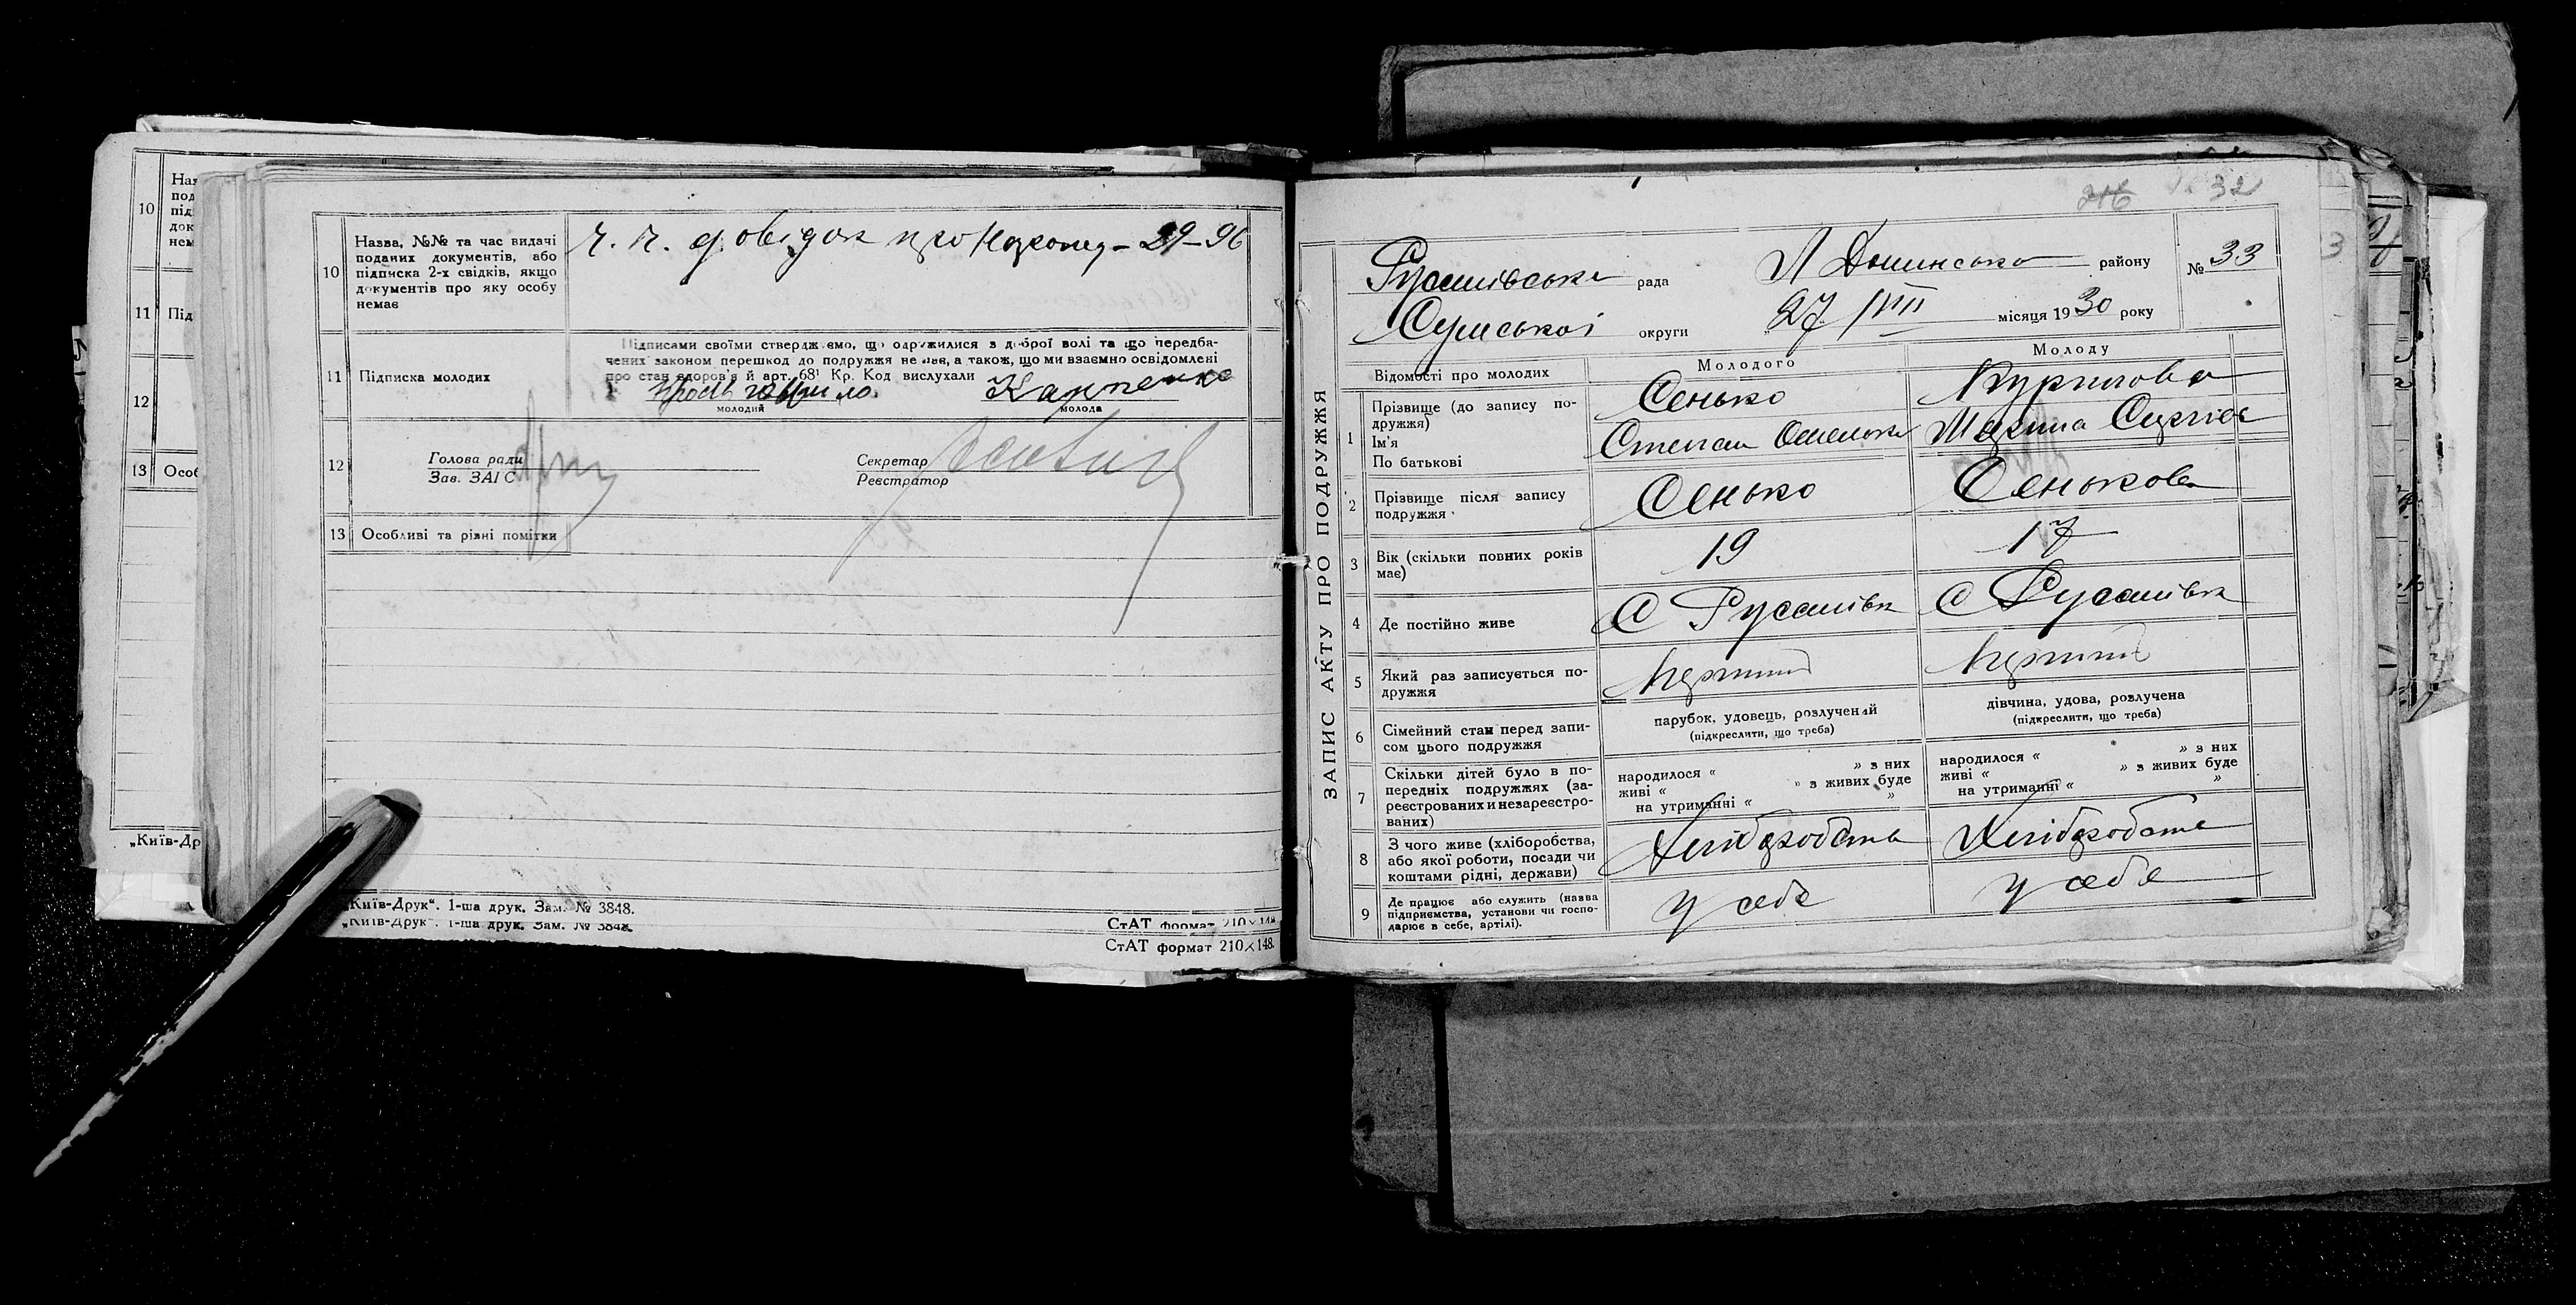 10
Назва, №№ та час видачі
поданих документів, або
підписка 2-х свідків, якщо
документів про яку особу
немає
довідок про народж – 29–96
11
Підписка молодих
Підписами своїми стверджуємо, що одружилися з доброї волі та що передба-
чених законом перешкод до подружжя немає, а також, що ми взаємно освідомлені
про стан здоров'я й арт. 68¹ Кр. Код вислухали
Карпенко
молодий
молода
12
Голова ради
Зав. ЗАГС
Секретар
Реєстратор
13
Особливі та різні помітки
„Київ-Друк“. 1-ша друк. Зам. № 3848.
СтАТ формат 210×148.
„Київ-Друк“. 1-ша друк. Зам. № 3848.
СтАТ формат 210×148.
10
11
Під
12
13
Особ
„Київ-Др
216
32
ЗАПИС АКТУ ПРО ПОДРУЖЖЯ
Русанівська рада
району
№ 33
Сумської округи
27/VIII місяця 1930 року
Відомості про молодих
Молодого
Молоду
1
Прізвище (до запису по-
дружжя)
Ім'я
По батькові
Сенько
Степан Омельков
Марина Сергієв
2
Прізвище після запису
подружжя
Сенько
Сенькова
3
Вік (скільки повних років
має)
19
17
4
Де постійно живе
С Русанівк
С Русанівк
5
Який раз записується по-
дружжя
перший
перший
6
Сімейний стан перед запи-
сом цього подружжя
парубок, удовець, розлучений
(підкреслити, що треба)
дівчина, удова, розлучена
(підкреслити, що треба)
7
Скільки дітей було в по-
передніх подружжях (за-
реєстрованих и незареєстро-
ваних)
народилося « » з них
живі « » з живих буде
на утриманні « »
народилося « » з них
живі « » з живих буде
на утриманні « »
8
З чого живе (хліборобства,
або якої роботи, посади чи
коштами рідні, держави)
Хліборобств
Хліборобств
9
Де працює або служить (назва
підприємства, установи чи госпо-
дарює в себе, артілі).
у себе
у себе